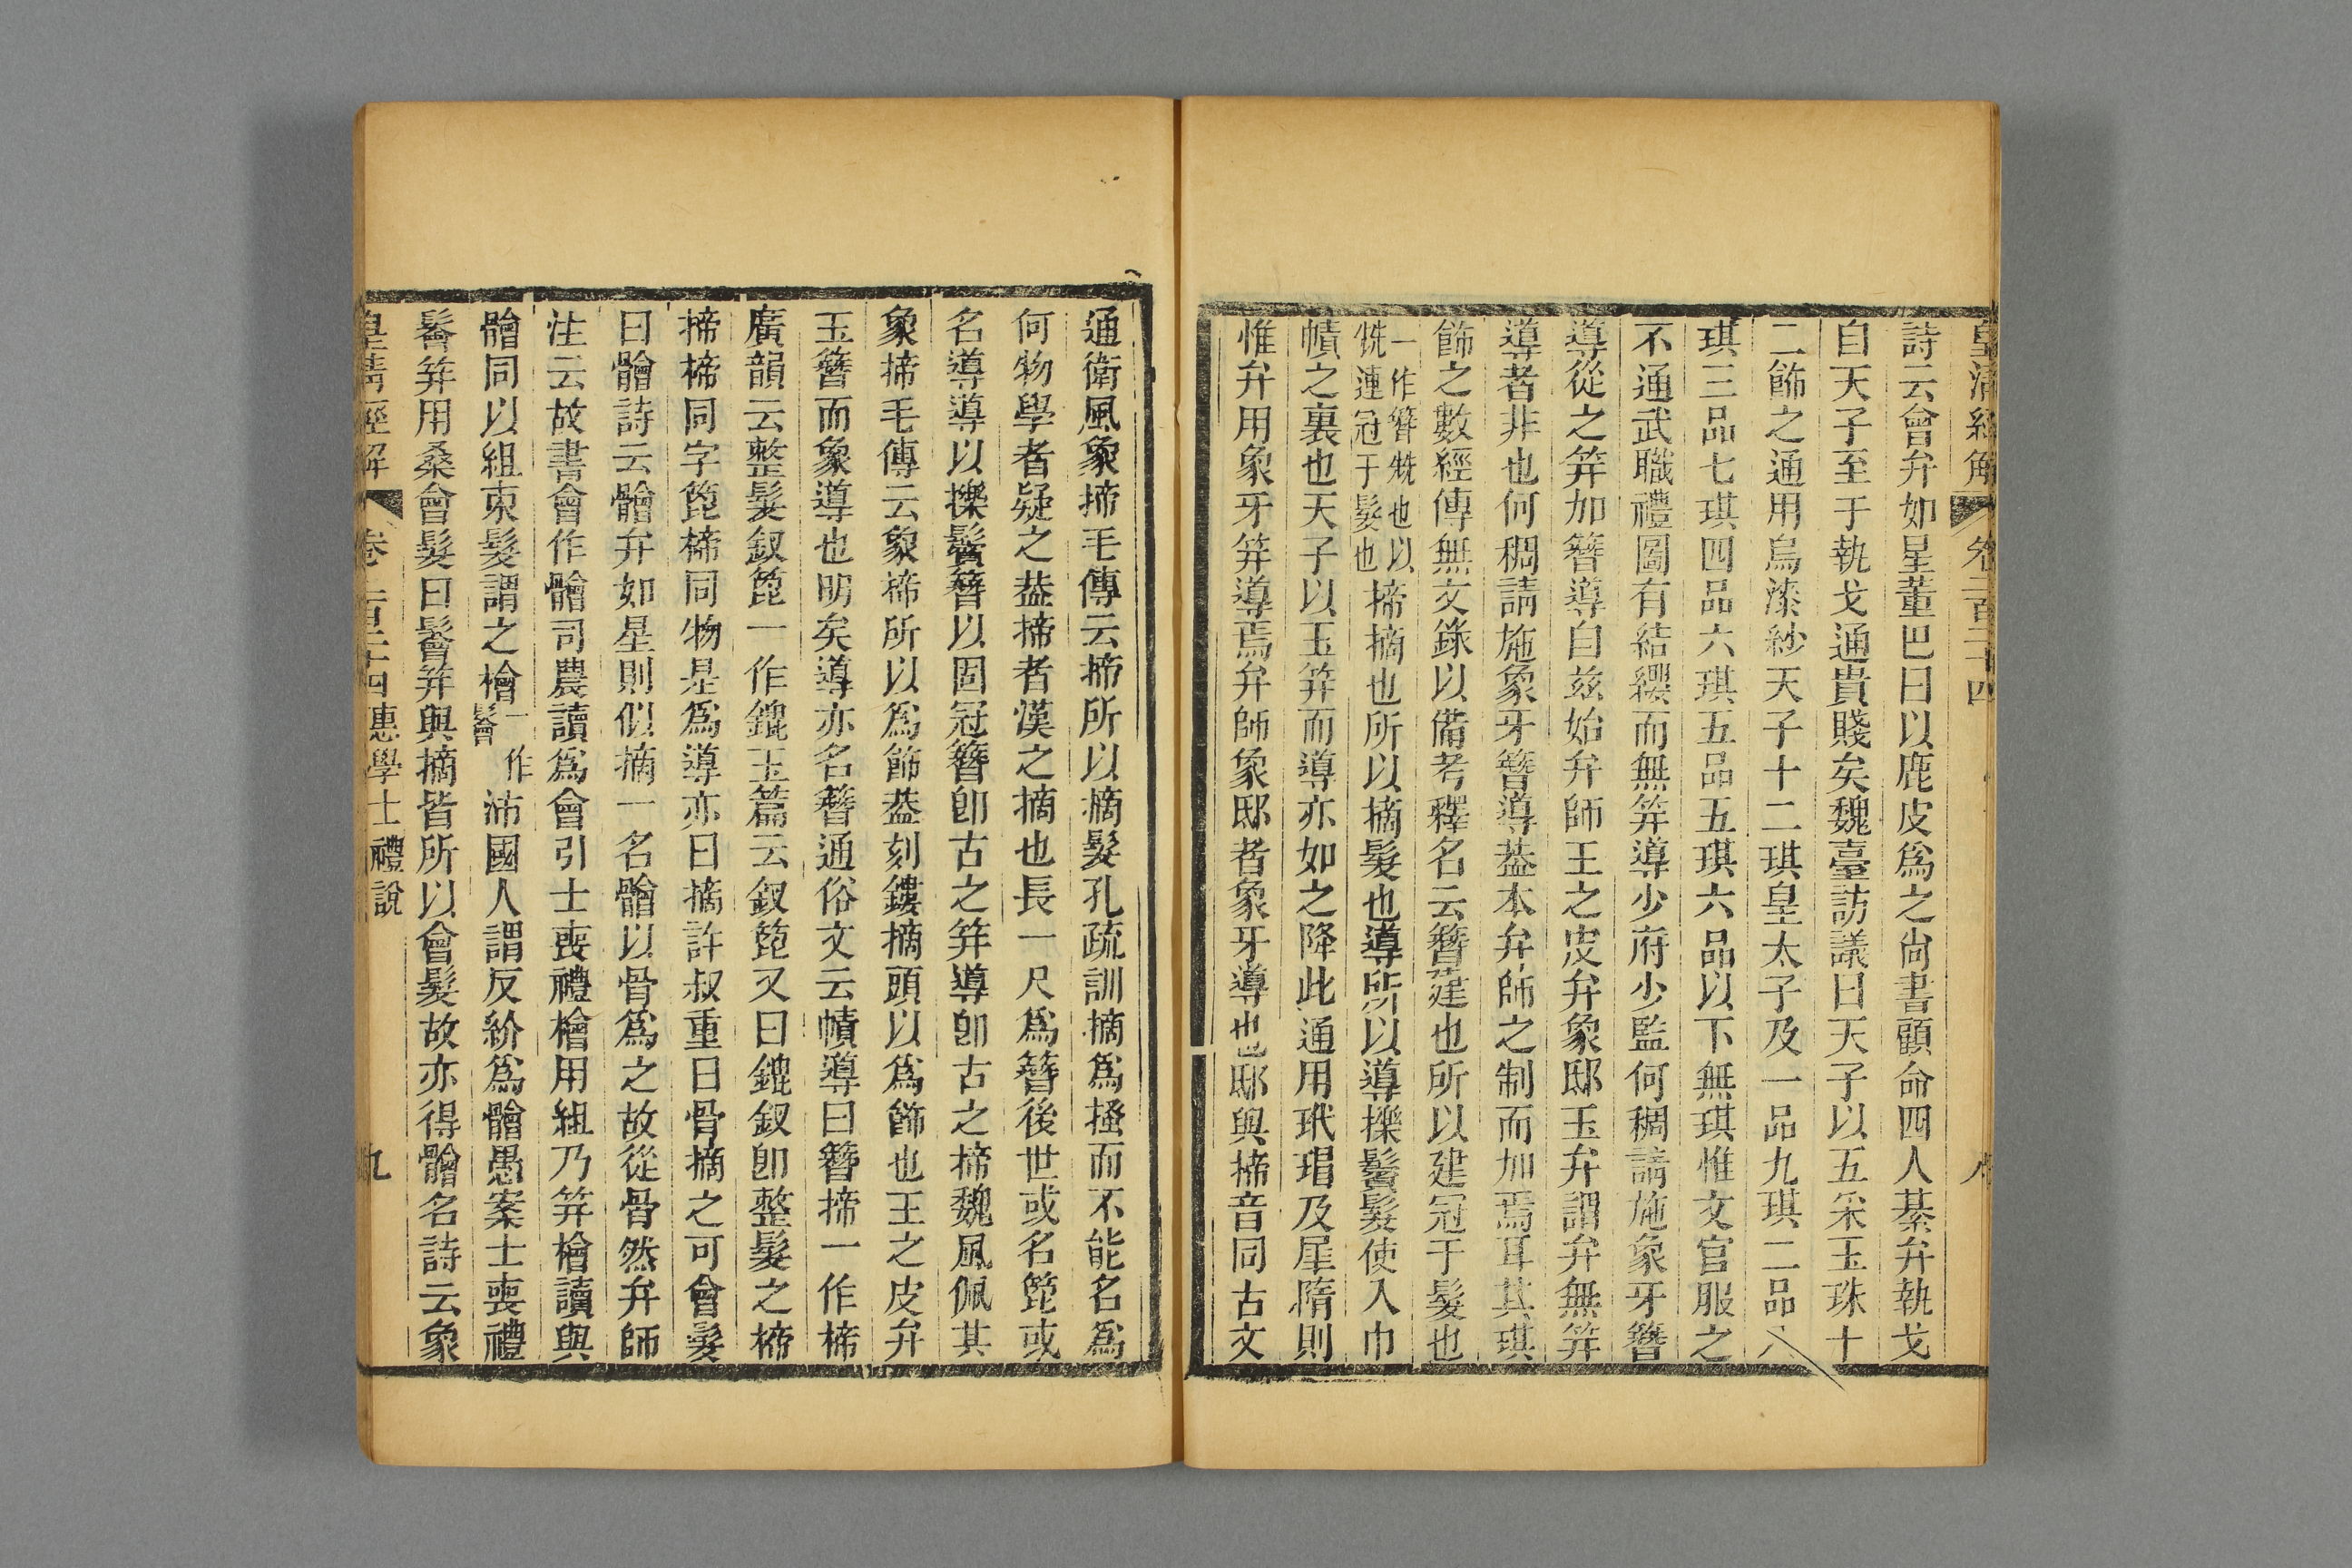 皇清經解 卷二百二十四
詩云會弁如星董巴曰以鹿皮爲之尙書顧命四人綦弁執戈
自天子至于執戈通貴賤矣魏臺訪議曰天子以五采玉珠十
二飾之通用烏漆紗天子十二琪皇太子及一品九琪二品八
琪三品七琪四品六琪五品五琪六品以下無琪惟文官服之
不通武職禮圖有結纓而無笄導少府少監何稠請施象牙簪
導從之笄加簪導自兹始弁師王之皮弁象邸玉弁謂弁無笄
導者非也何稠請施象牙簪導葢本弁師之制而加焉耳其琪
飾之數經傳無文錄以備考釋名云簪建也所以建冠于髮也
一作簪兟也以兟連冠于髮也揥摘也所以摘髮也導所以導擽鬢髮使入巾
幘之裏也天子以玉笄而導亦如之降此通用玳瑁及犀隋則
惟弁用象牙笄導焉弁師象邸者象牙導也邸與揥音同古文
通衛風象揥毛傳云揥所以摘髮孔疏訓摘爲搔而不能名爲
何物學者疑之葢揥者漢之摘也長一尺爲簪後世或名箆或
名導導以擽鬢簪以固冠簪卽古之笄導卽古之揥魏風佩其
象揥毛傳云象揥所以爲飾葢刻鏤摘頭以爲飾也王之皮弁
玉簪而象導也明矣導亦名簪通俗文云幘導曰簪揥一作楴
廣韻云整髮釵箆一作鎞玉篇云釵箆又曰鎞釵卽整髮之楴
揥楴同字箆楴同物是爲導亦曰摘許叔重曰骨摘之可會髮
曰䯤詩云䯤弁如星則似摘一名䯤以骨爲之故從骨然弁師
注云故書會作䯤司農讀爲會引士喪禮檜用組乃笄檜讀與
䯤同以組束髮謂之檜一作鬠沛國人謂反紒爲䯤愚案士喪禮
鬠笄用桑會髮曰鬠笄與摘皆所以會髮故亦得䯤名詩云象
皇清經解 卷二百二十四 惠學士禮說 九